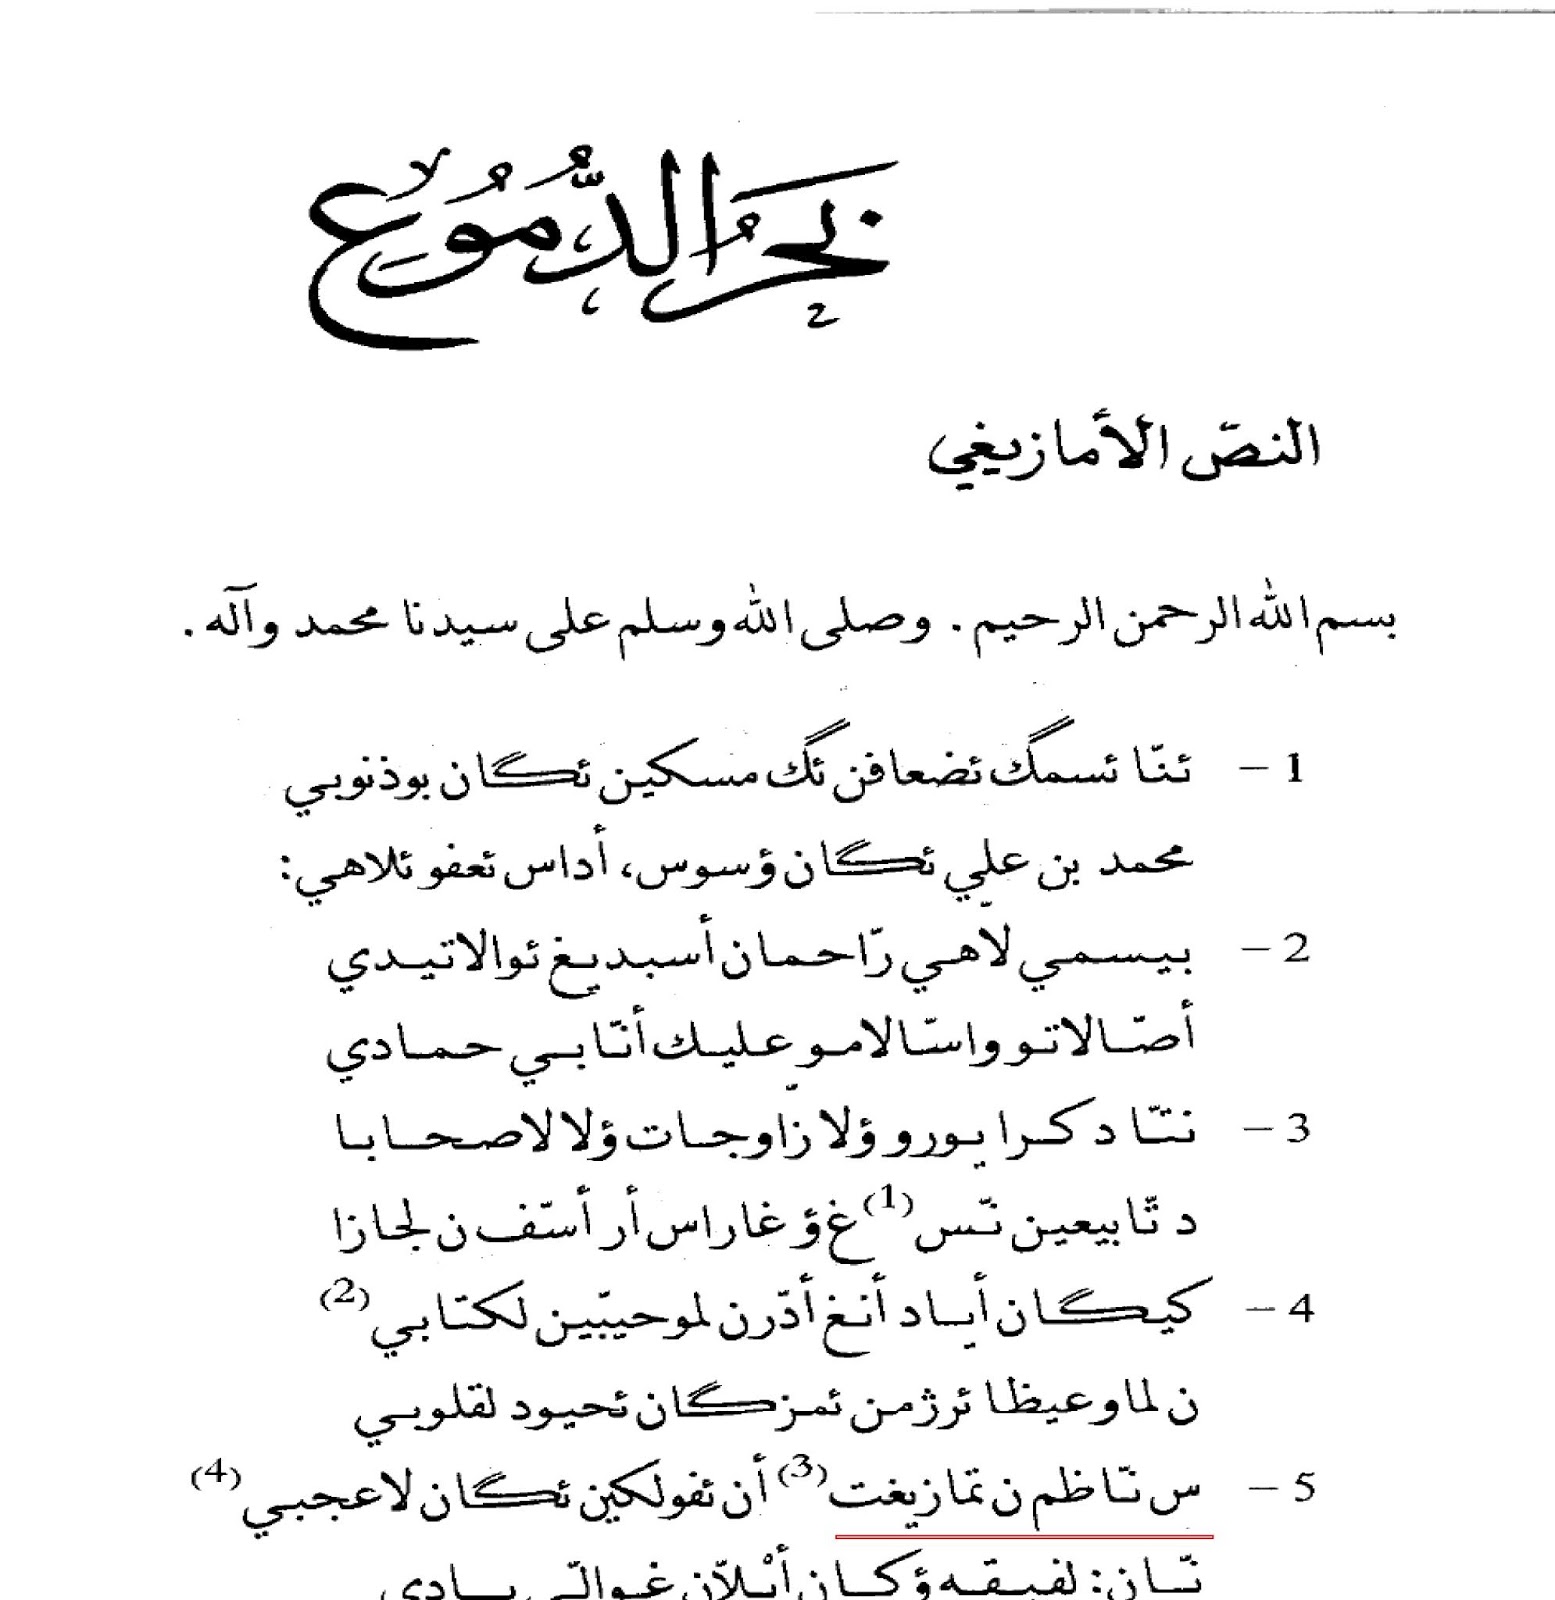 بَحْرُ الدُّمُوعِ
النصّ الأمازيغي
بسم الله الرحمن الرحيم . وصلى الله وسلم على سيدنا محمد وآله .
1 - ئنّا ئسمگ ئضعافن ئگ مسكين ئگان بوذنوبي
محمد بن علي ئگان ؤسوس، أداس ئعفو ئلاهي:
2 - بيسمي لّاهي رّاحمان أسبديغ ئوالاتيدي
أصّالاتو واسّالامو عليك أنّابي حمادي
3 - نتّا د كرا يورو ؤلا زاوجات ؤلا لاصحابا
د تّابيعين نّس (1) غ ؤ غاراس أر أسّف ن لجازا
4 - كيگان أياد أنغ أدّرن لموحيبّين لكتابي (2)
ن لماوعيظا ئرژمن ئمزگان ئحيود لقلوبي
5 - س نّاظم ن تمازيغت (3) أن ئفولكين ئگان لاعجبي (4)
نّان: لفيقه ؤكان أيْلّان غوالّي يادي